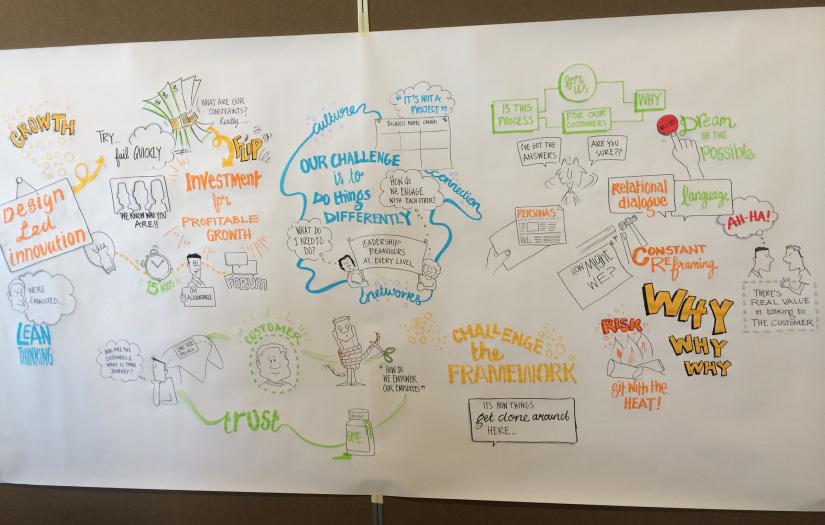 GROWTH
Design
Led
innovation
WERE
EXHAUSTED...
LEAN
THINKING
TRY...
fail QUICKLY
WE KNOW WHO YOU
ARE!!
15 MINS
I'M
ACCOUNTABLE
FORUM
WHAT ARE OUR
CONSTRAINTS?
Really...
FLIP
INVESTMENT
for
PROFITABLE
GROWTH
WHO ARE THE
CUSTOMERS &
WHAT IS THEIR
JOURNEY?
trust
CUSTOMER
GLUE
"HOW DO
WE EMPOWER
OUR EMPLOYEES"
culture
OUR CHALLENGE
is to
DO things
DIFFERENTLY
WHAT DO
I NEED TO
DO?
"IT'S NOT A
PROJECT"
BUSINESS MODEL CANVAS
HOW DO
WE ENGAGE
WITH EACH OTHER!
connection
LEADERSHIP
BEHAVIOURS
AT EVERY LEVEL
networks
CHALLENGE
the
FRAMEWORK
ITS HOW THINGS
get done around
HERE...
IS THIS
PROCESS
for
us
FOR OUR
CUSTOMERS
WHY
I'VE GOT THE
ANSWERS
ARE YOU
SURE??
PERSONAS
HOW MIGHT
WE?
Dream
OF THE
Possible
Relational
dialogue
language
AH-HA!
CONSTANT
REframing
WHY
WHY
WHY
RISK
sit with the
HEAT!
THERE'S
REAL VALUE
in talking to
THE CUSTOMER